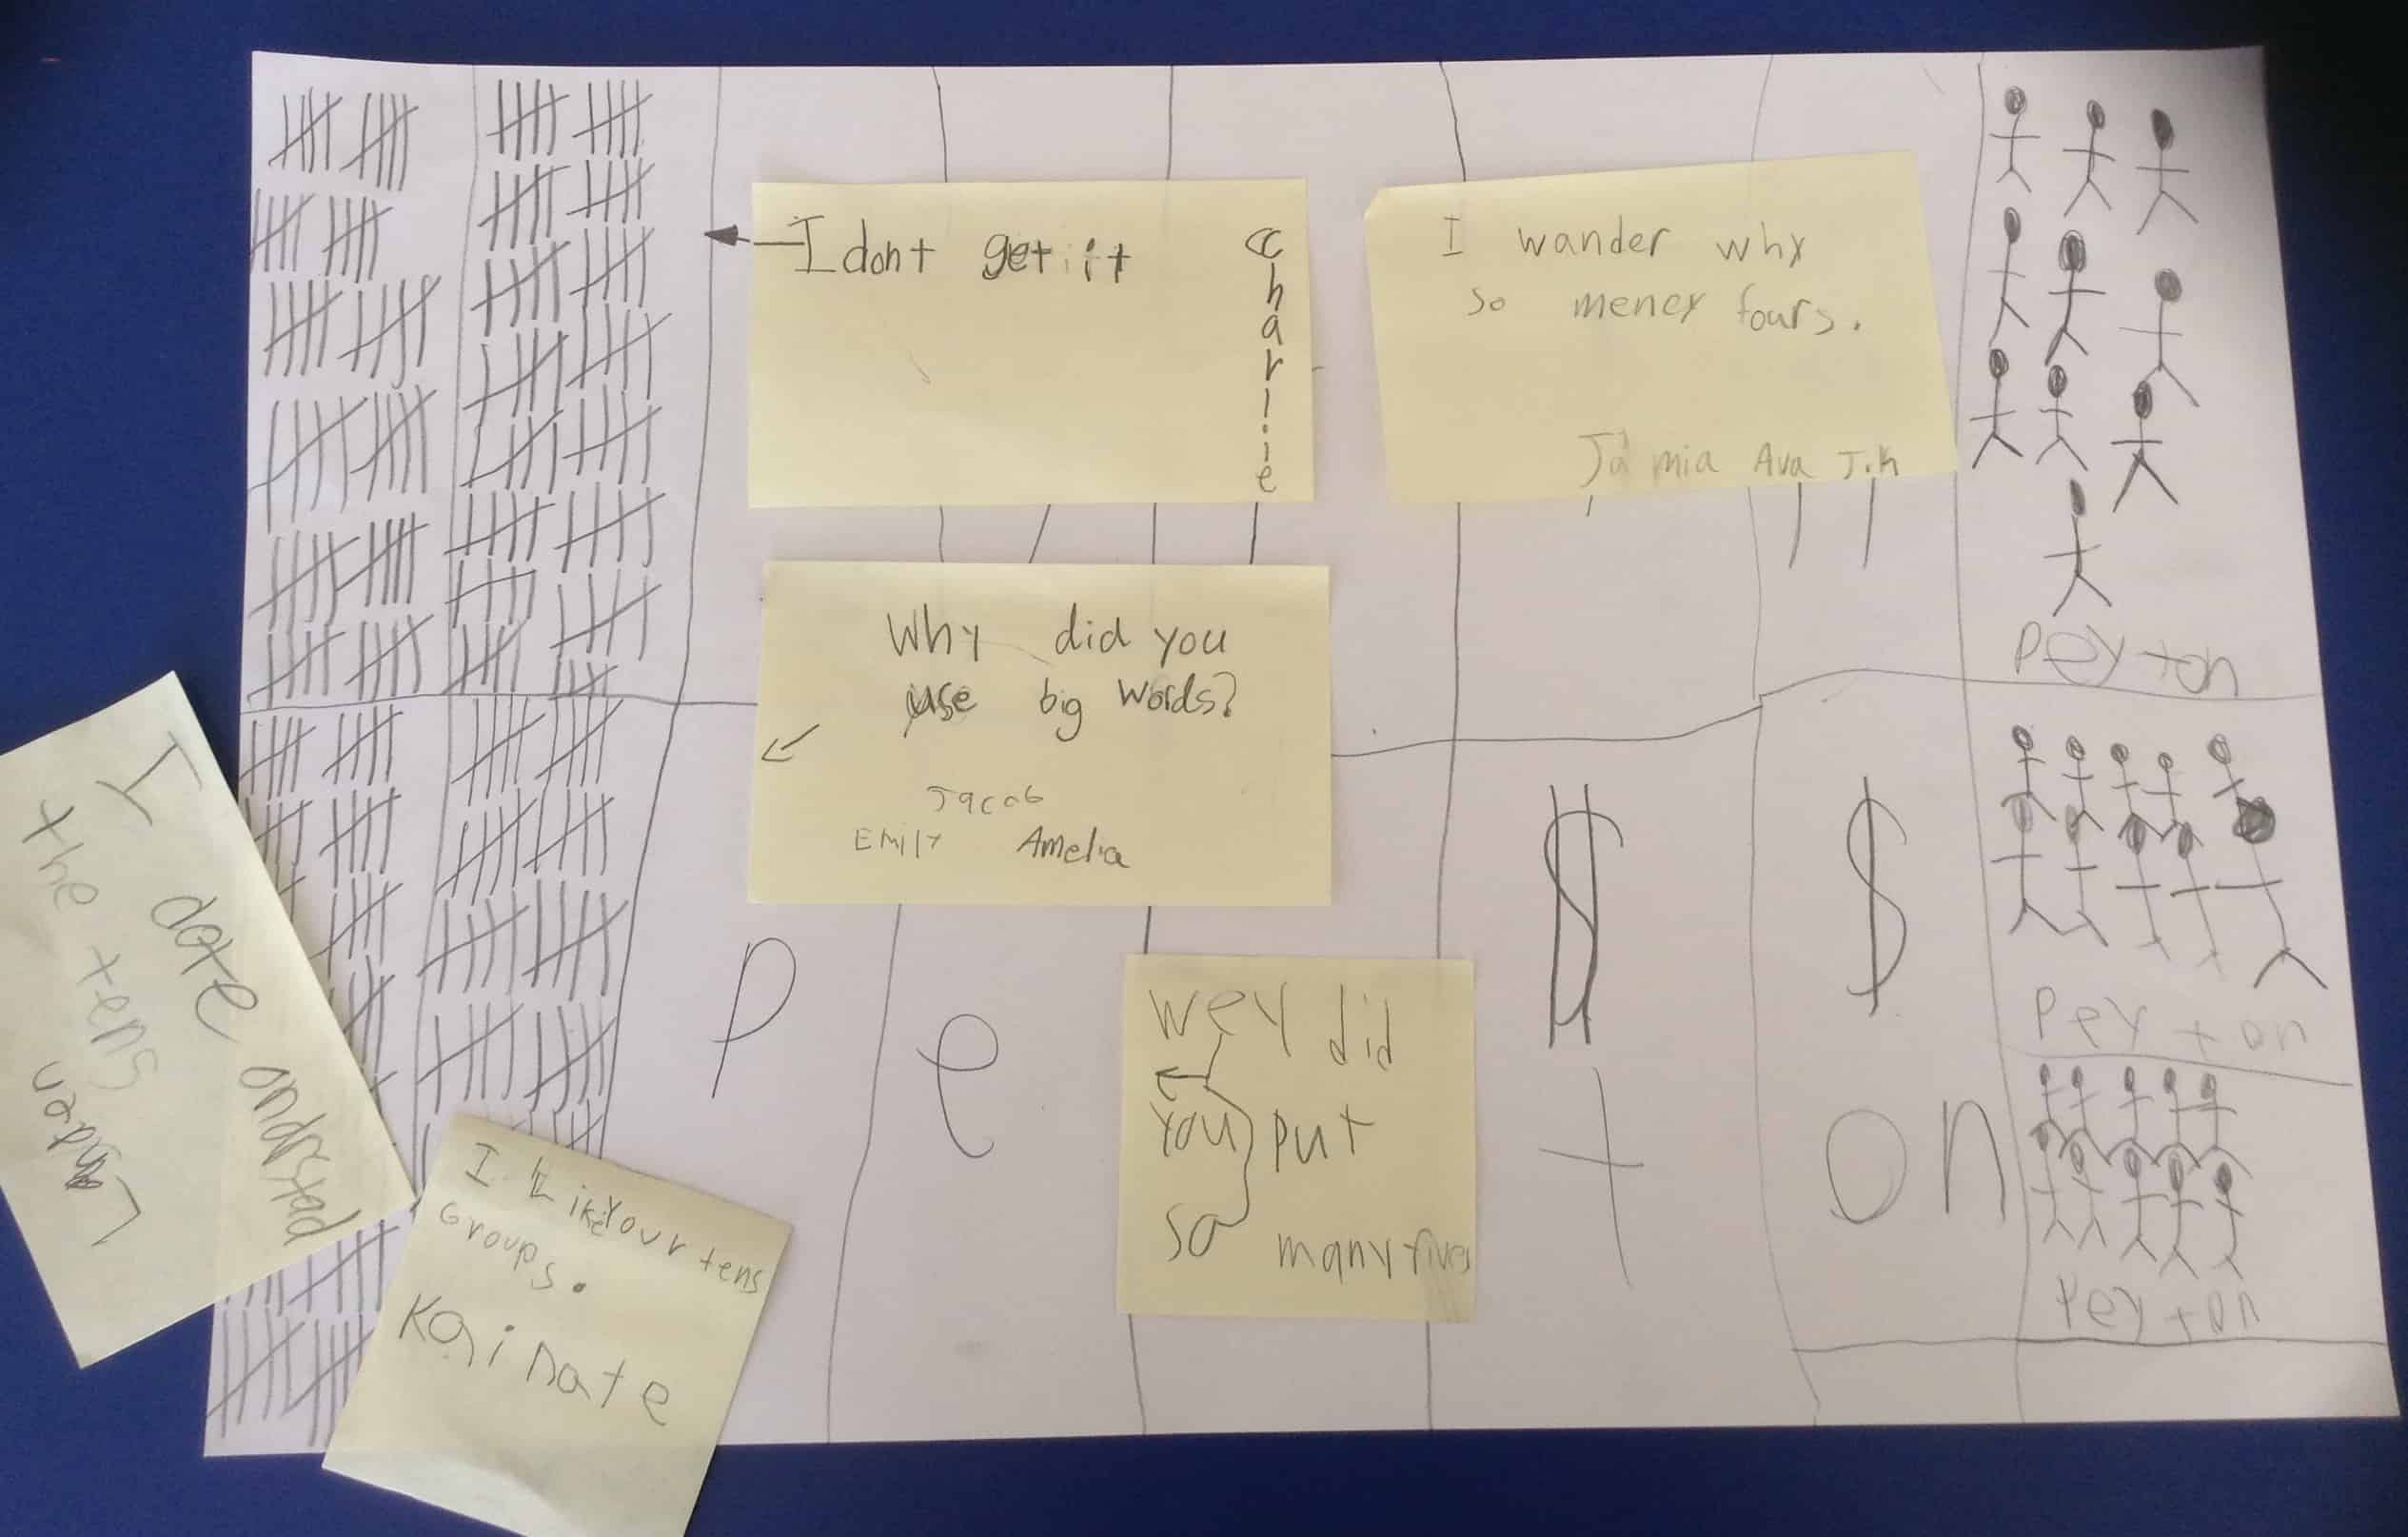 I dont get it
Charlie
I wander why
so meney fours.
Ja mia Ava
Why did you
use big words?
Jacob
Emily Amelia
wey did
you put
so many fives
I dote onderstad
the tens
Layden
I Like Your tens
Groups.
Kainate
Peyton
Peyton
Peyton
$ $
P e t on